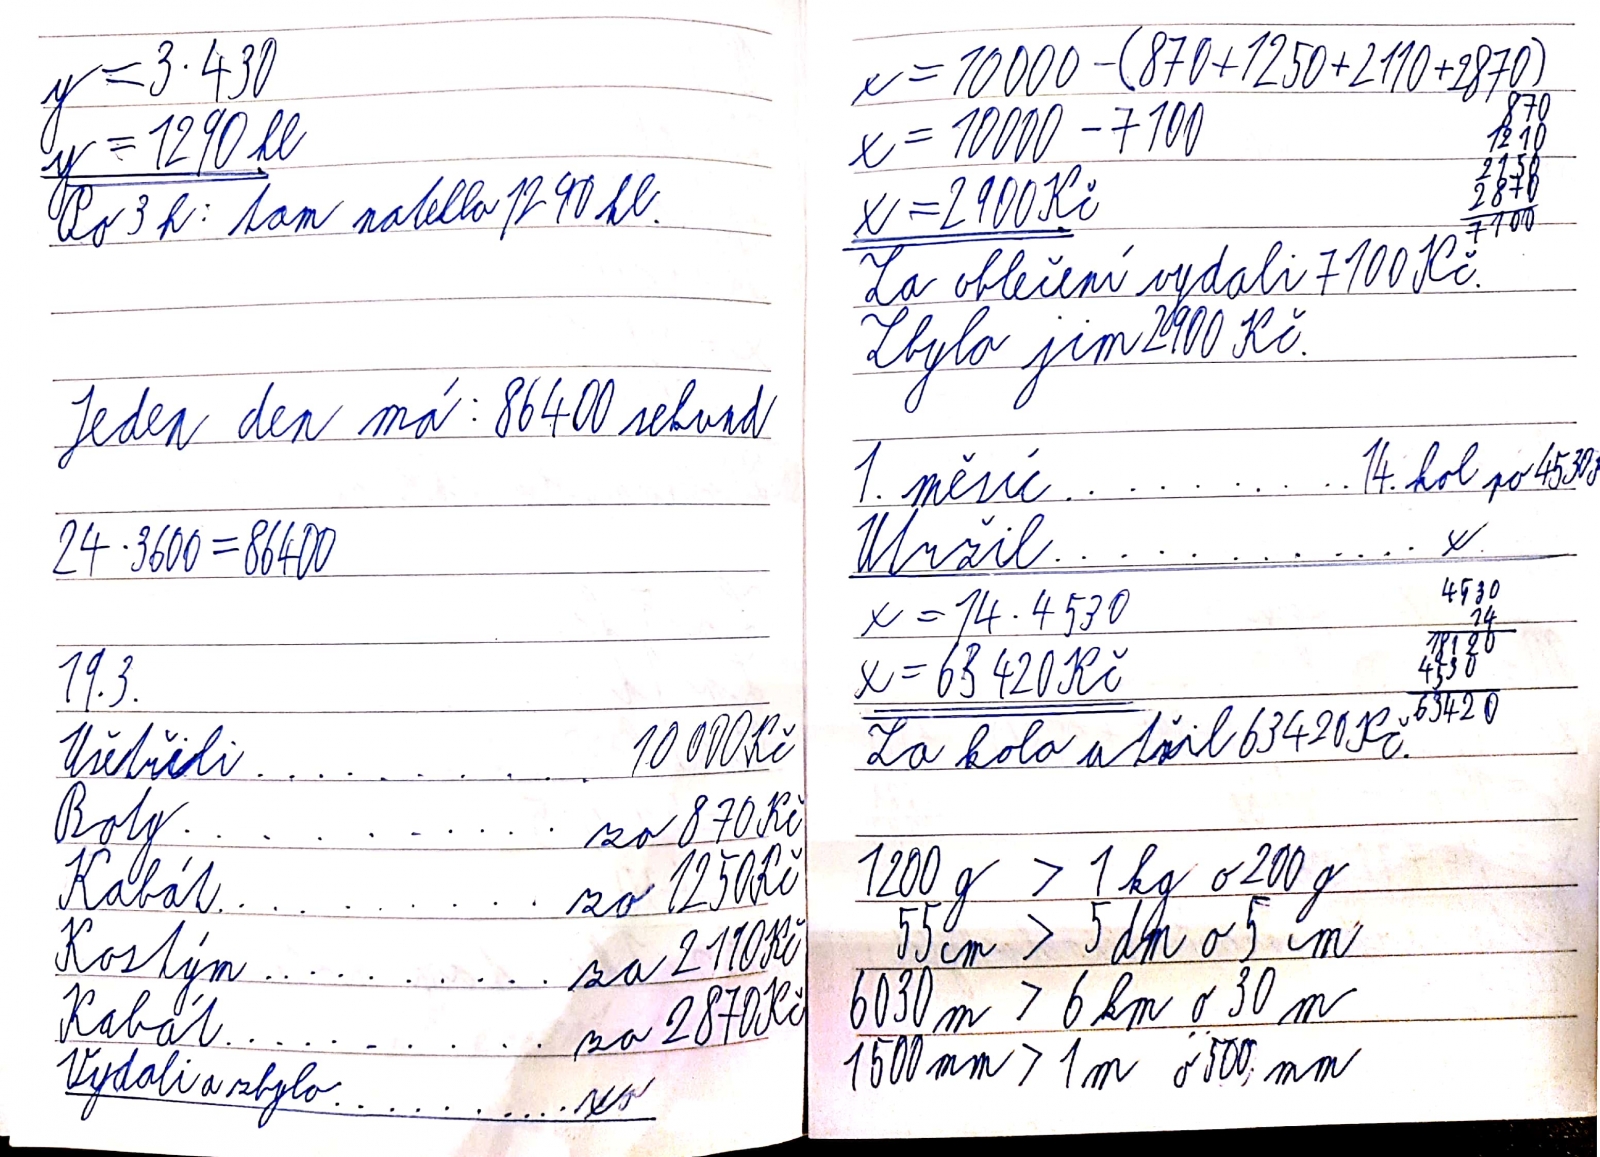 y = 3 · 430
y = 1290 hl
Po 3 h: tam nateklo 1290 hl.
Jeden den má: 86400 sekund
24 · 3600 = 86400
19.3.
Ušetřili . . . . . . . . . . 10 000 Kč
Boty . . . . . . . . . . za 870 Kč
Kabát . . . . . . . . . . za 1250 Kč
Kostým . . . . . . . . . . za 2110 Kč
Kabát . . . . . . . . . . za 2870 Kč
Vydali a zbylo . . . . . . . . . .
x = 10000 - (870 + 1250 + 2110 + 2870)
x = 10000 - 7100
x = 2900 Kč
870
1210
2150
2870
7100
Za oblečení vydali 7100 Kč.
Zbylo jim 2900 Kč.
1. měsíc . . . . . . . . . . 14. kol po 4530
Utržil . . . . . . . . . . x
x = 14 · 4530
x = 63 420 Kč
4530
14
18120
4530
63420
Za kola utžil 63420 Kč.
1200 g > 1 kg o 200 g
55 cm > 5 dm o 5 cm
6030 m > 6 km o 30 m
1500 mm > 1 m o 500 mm